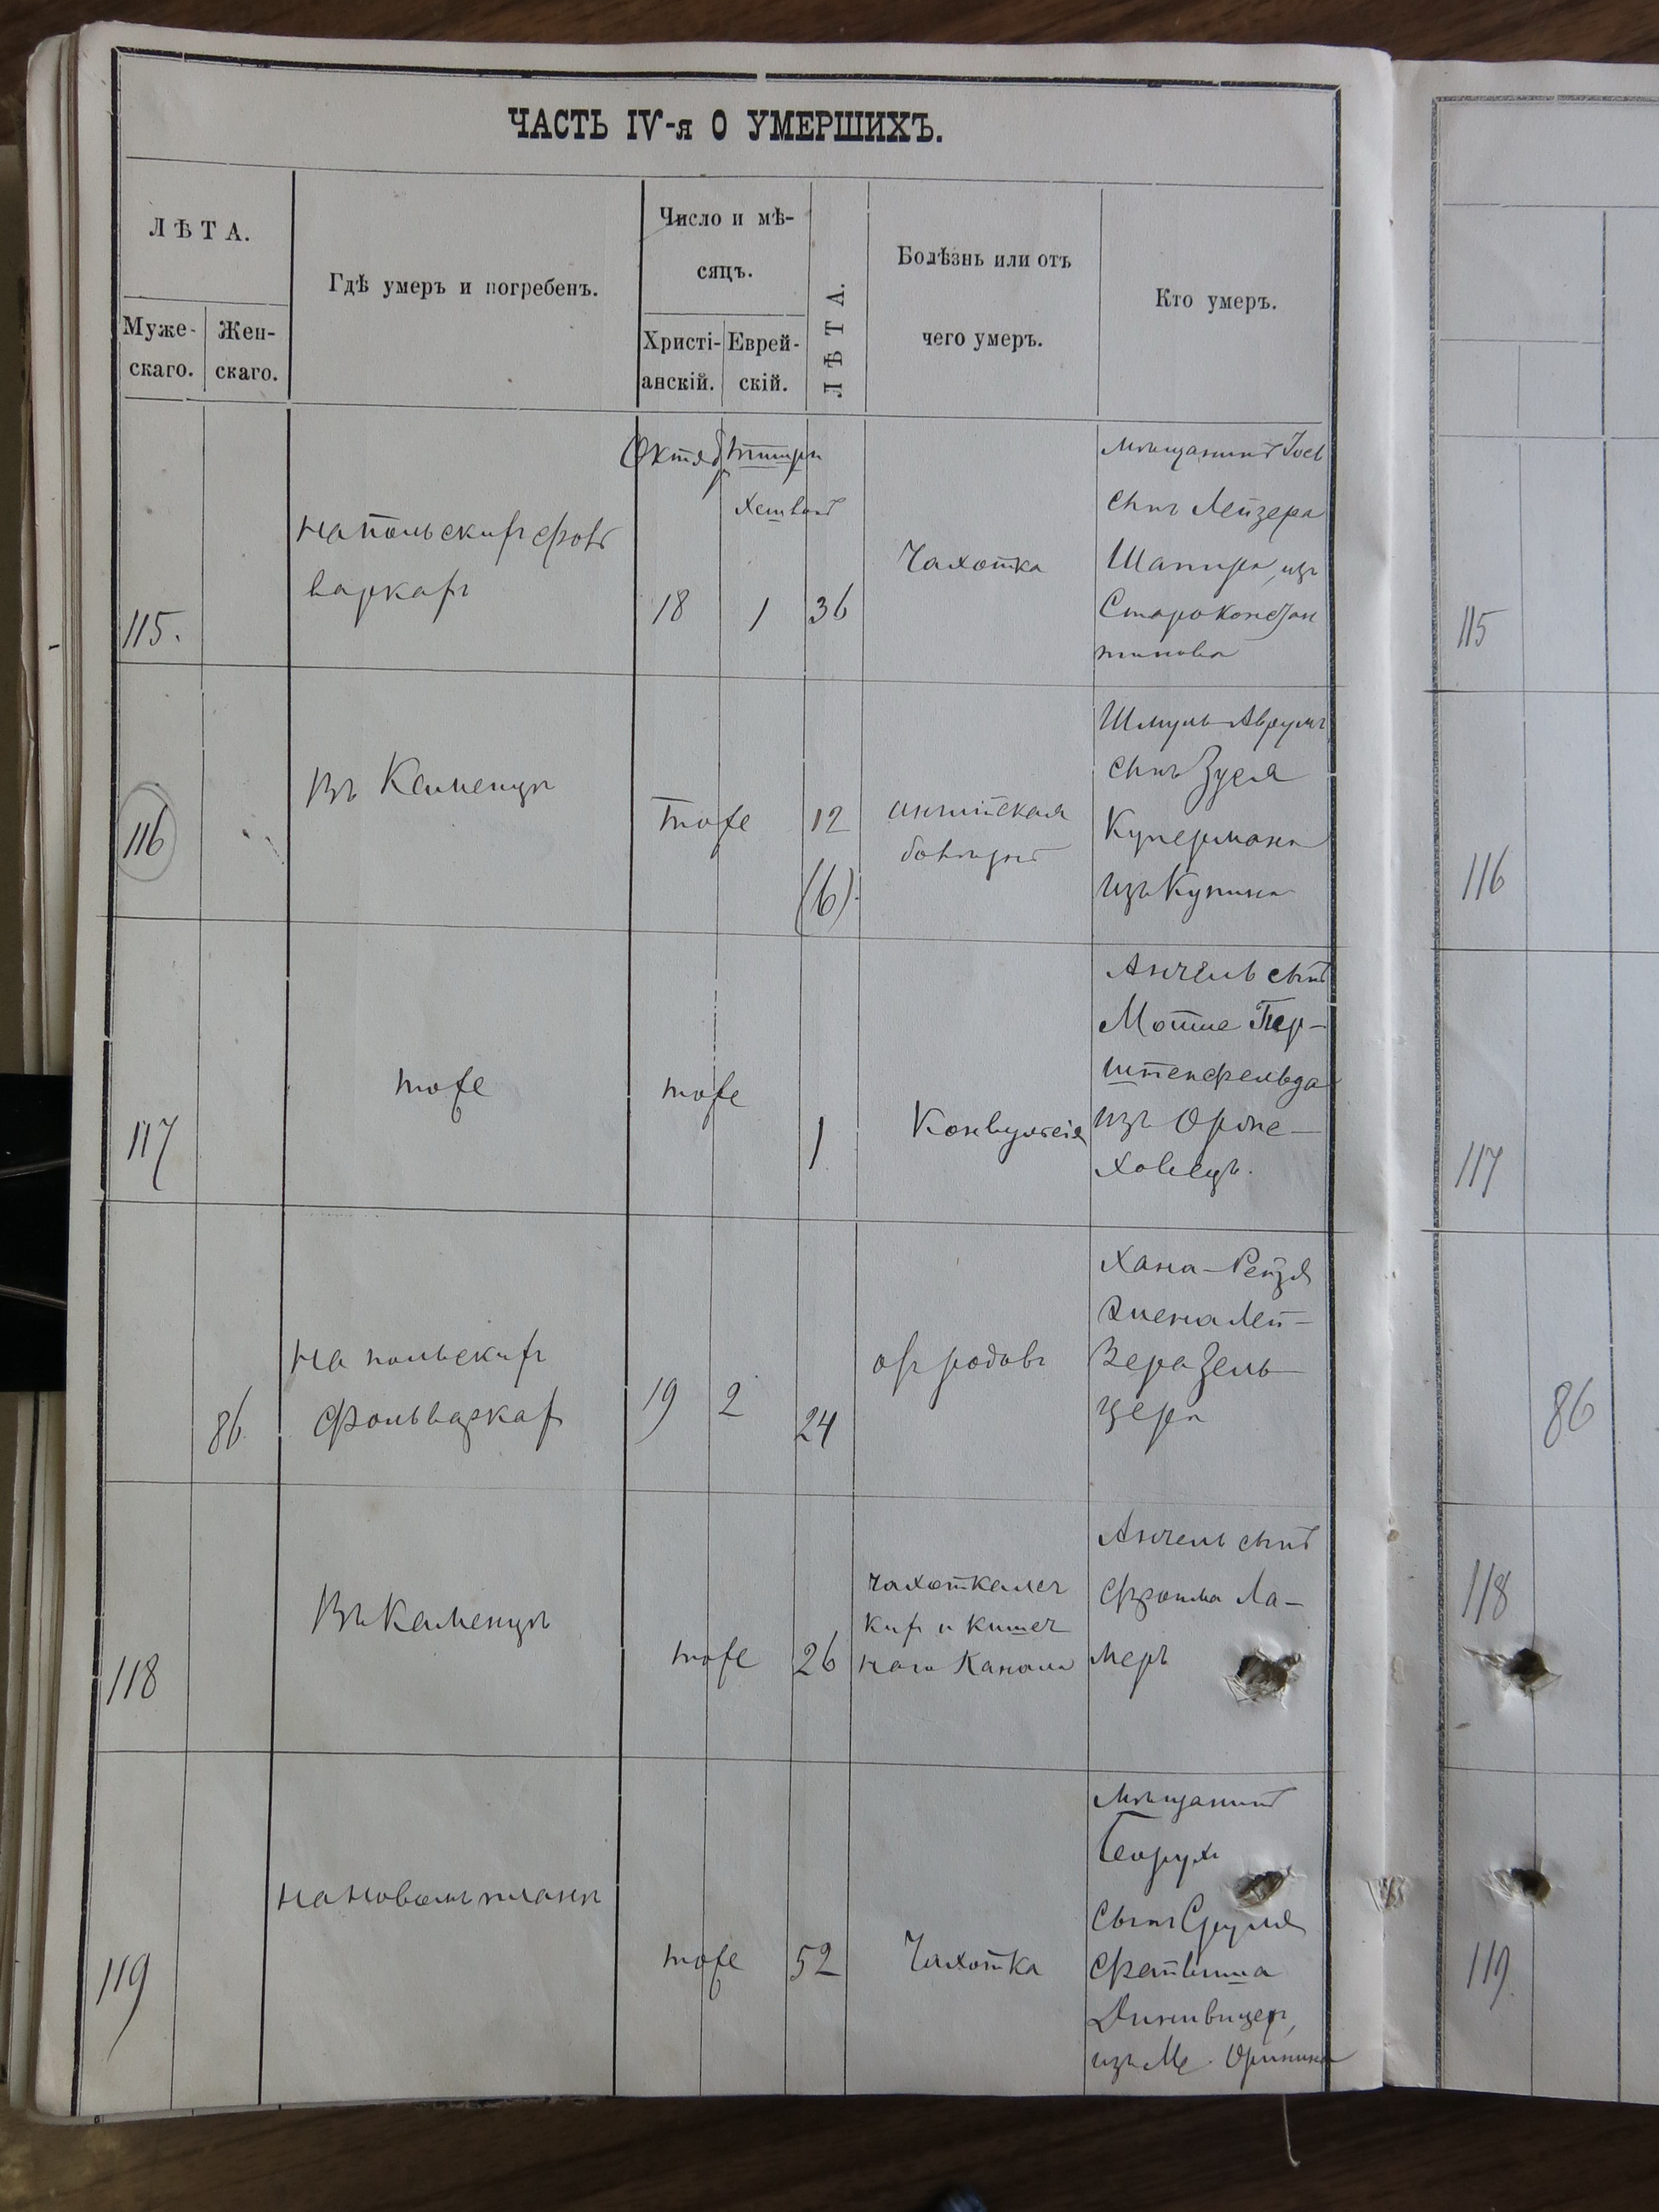 ЧАСТЬ IV-я О УМЕРШИХЪ.
ЛѢТА.
Муже-
скаго.
Жен-
скаго.
Гдѣ умеръ и погребенъ.
Число и мѣ-
сяцъ.
Христі-
анскій.
Еврей-
скій.
ЛѢТА.
Болѣзнь или отъ
чего умеръ.
Кто умеръ.
115.
на польскихъ фоль
варкахъ
Октяб
Тишри
Хешван
18
1
36
Чахотка
мѣщанинъ Іос
сынъ Лейзера
Шапира, изъ
Староконстан
тинова
115
116
Въ Каменцѣ
тоже
12
(6).
англійская
болѣзнь
Шмуль-Аврумъ
сынъ Зуся
Купермана
изъ Купина
116
117
тоже
тоже
1
Конвульсія
Анчель сынъ
Мотте Пер-
штенфельда
изъ
117
86
на польскихъ
фольваркахъ
19
2
24
отъ родовъ
Хана-Рейзя
жена Лей-
зера Зель-
цера
86
118
Въ Каменцѣ
тоже
26
чахотка лег
кихъ и кишеч
наго канала
Анчель сынъ
Фроима Ла-
меръ
118
119
на новомъ планѣ
тоже
52
Чахотка
мѣщанинъ
Борухъ
сынъ Сруля
Файвиша
изъ м. Оринина
119